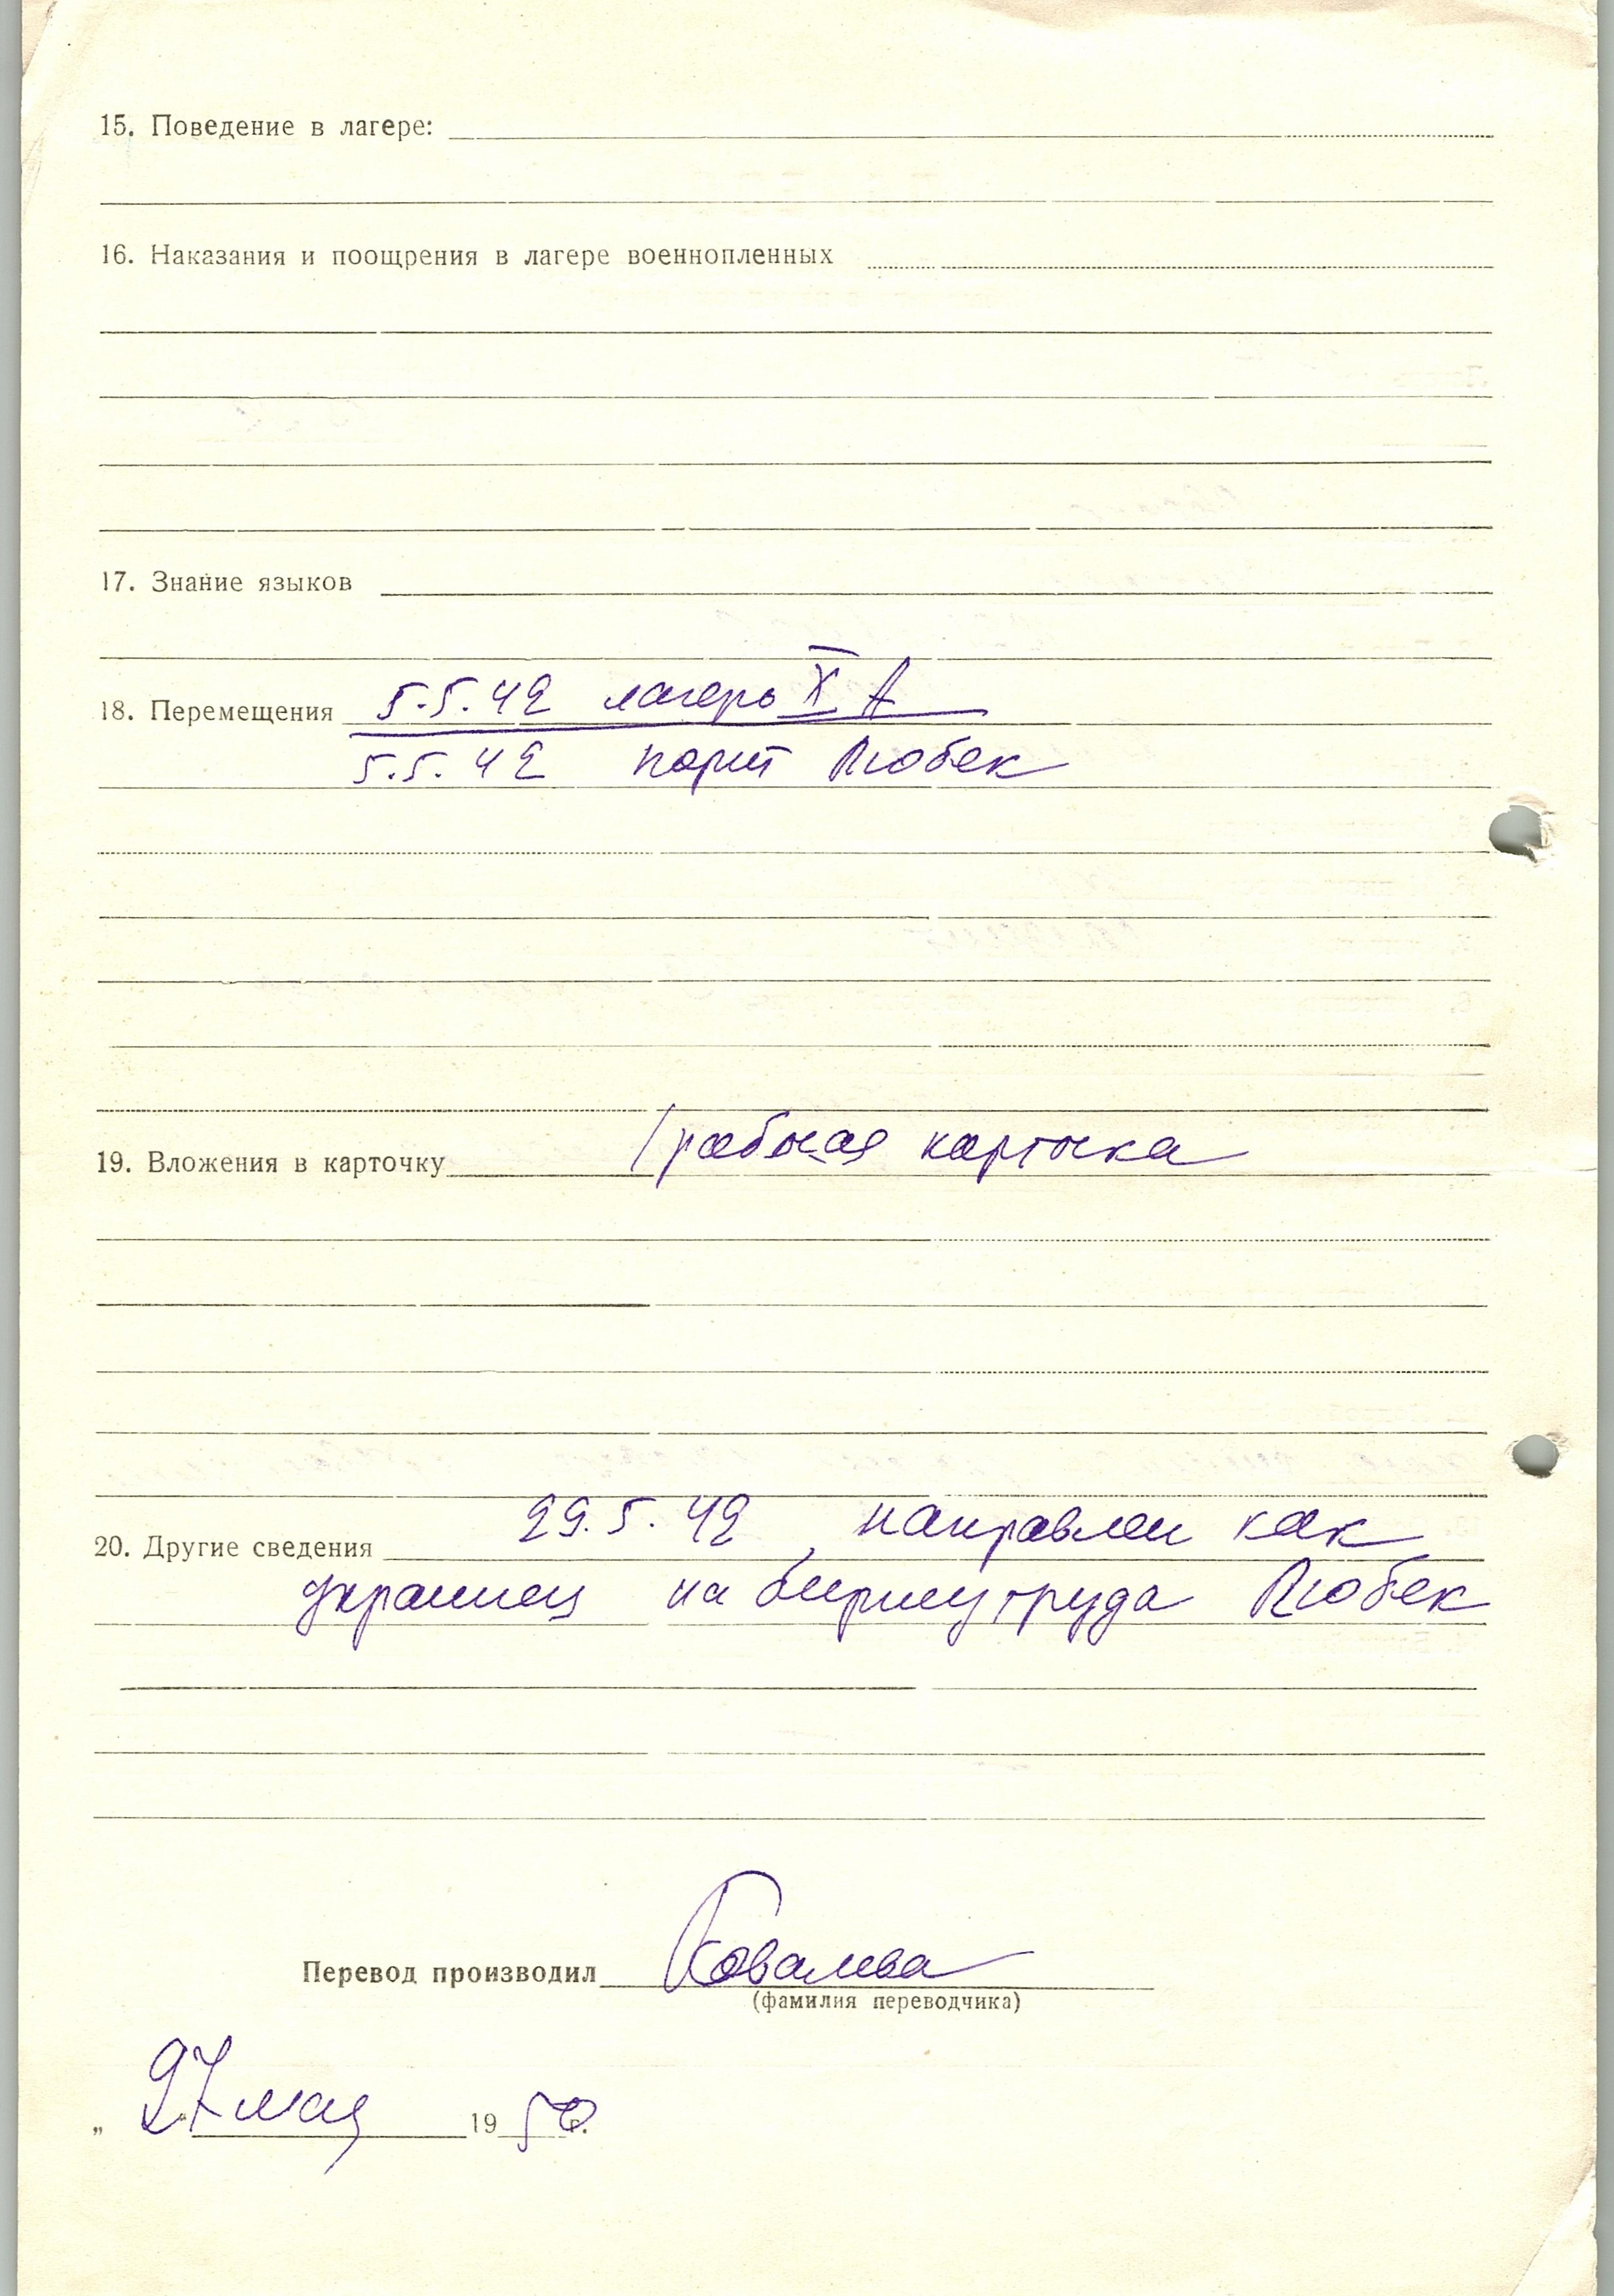 15. Поведение в лагере:
16. Наказания и поощрения в лагере военнопленных
17. Знание языков
18. Перемещения 5.5.42 лагерь X A
5.5.42 порт Любек
19. Вложения в карточку рабочая карточка
20. Другие сведения 29.5.42 направлен как
украинец на биржу труда Любек
Перевод производил Ковалева
(фамилия переводчика)
„ 27 мая 1950 г.